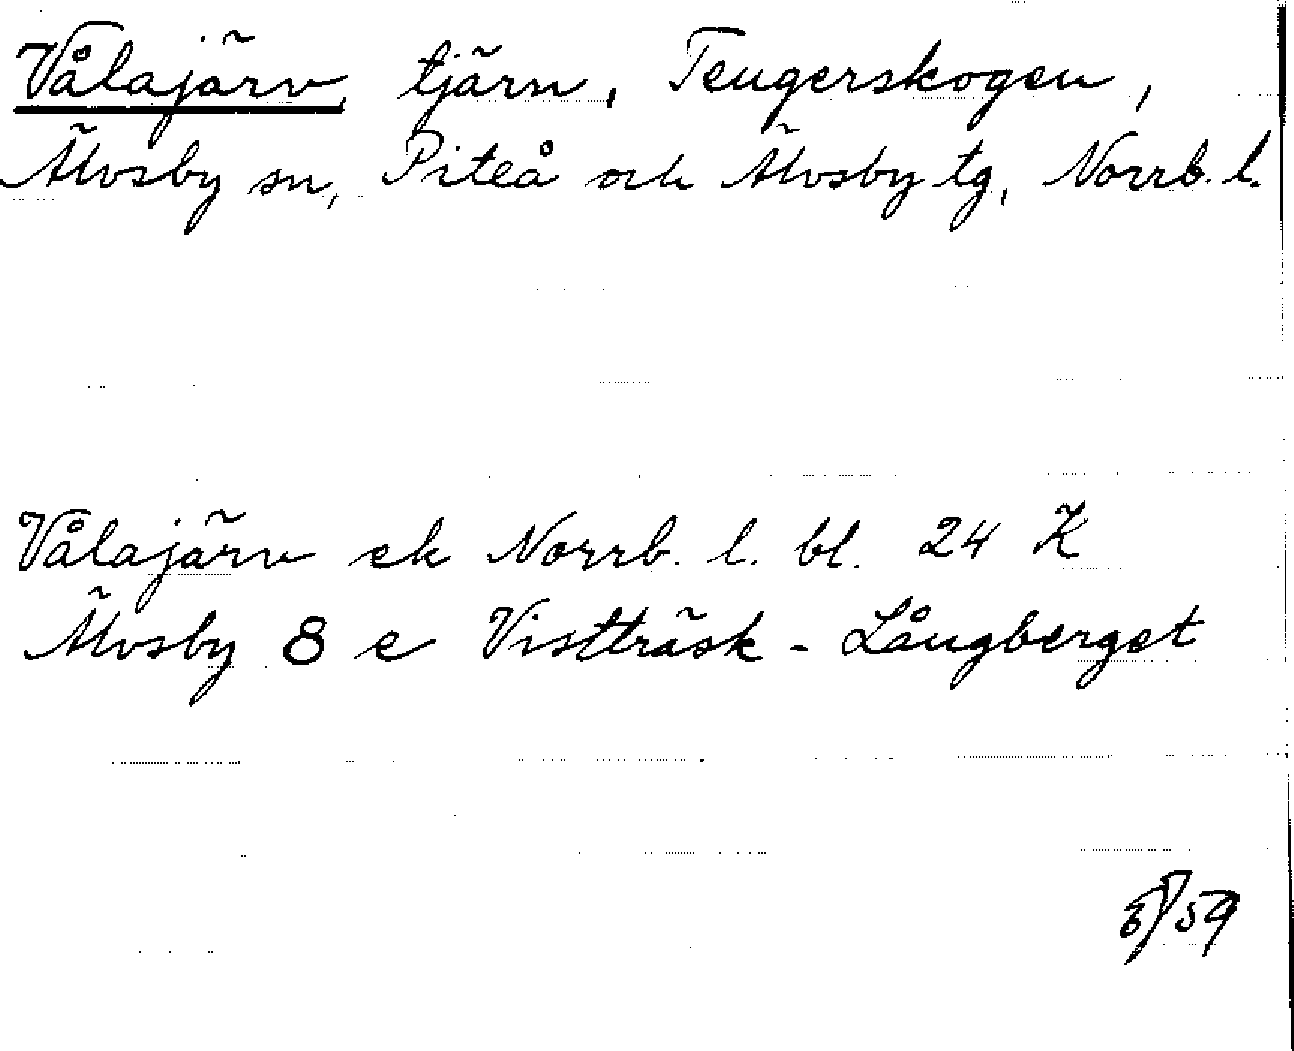 Vålajärv, tjärn, Teugerskogen,
Älvsby sn, Piteå och Älvsby tg, Norrb. l.
Vålajärv ek Norrb. l. bl. 24 K
Älvsby 8 e Vistträsk - Långberget